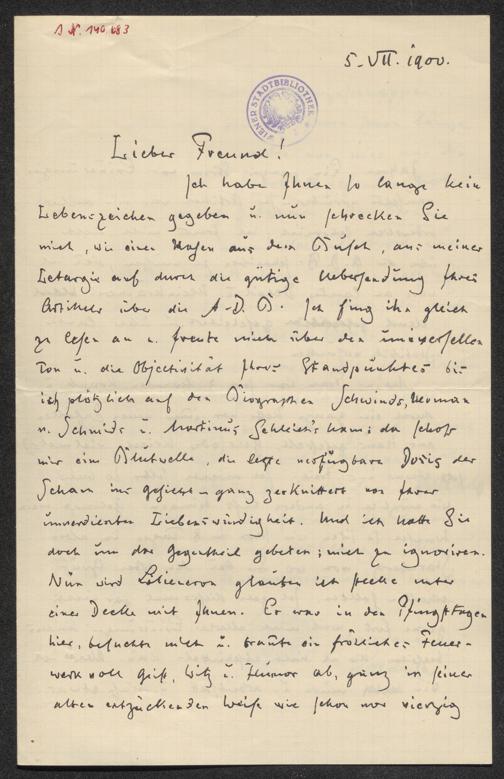 J.N. 140.683
5. VII. 1900.
WIENER STADTBIBLIOTHEK
Lieber Freund!
Ich habe Ihnen so lange kein
Lebenszeichen gegeben u. nun schrecken Sie
mich, wie einen Hasen aus dem Busch, aus meiner
Letargie auf durch die gütige Uebersendung Ihres
Artikels über die A. D. B. Ich fing ihn gleich
zu lesen an u. freute mich über den universellen
Ton u. die Objectivität Ihres Standpunktes bis
ich plötzlich auf den Biographen Schwinds,
u. Schmids u. Martinus Schleich's kam; da schoss
mir eine Blutwelle, die letzte verfügbare Dosis der
Scham ins Gesicht – ganz zerknittert vor Ihrer
unverdienten Liebenswürdigkeit. Und ich hatte Sie
doch um das Gegentheil gebeten; mich zu ignoriren.
Nun wird Liliencron glauben ich stecke unter
einer Decke mit Ihnen. Er war in den Pfingsttagen
hier, besuchte mich u. brannte ein fröhliches Feuer-
werk voll Geist, Witz u. Humor ab, ganz in seiner
alten entzückenden Weise wie schon vor vierzig